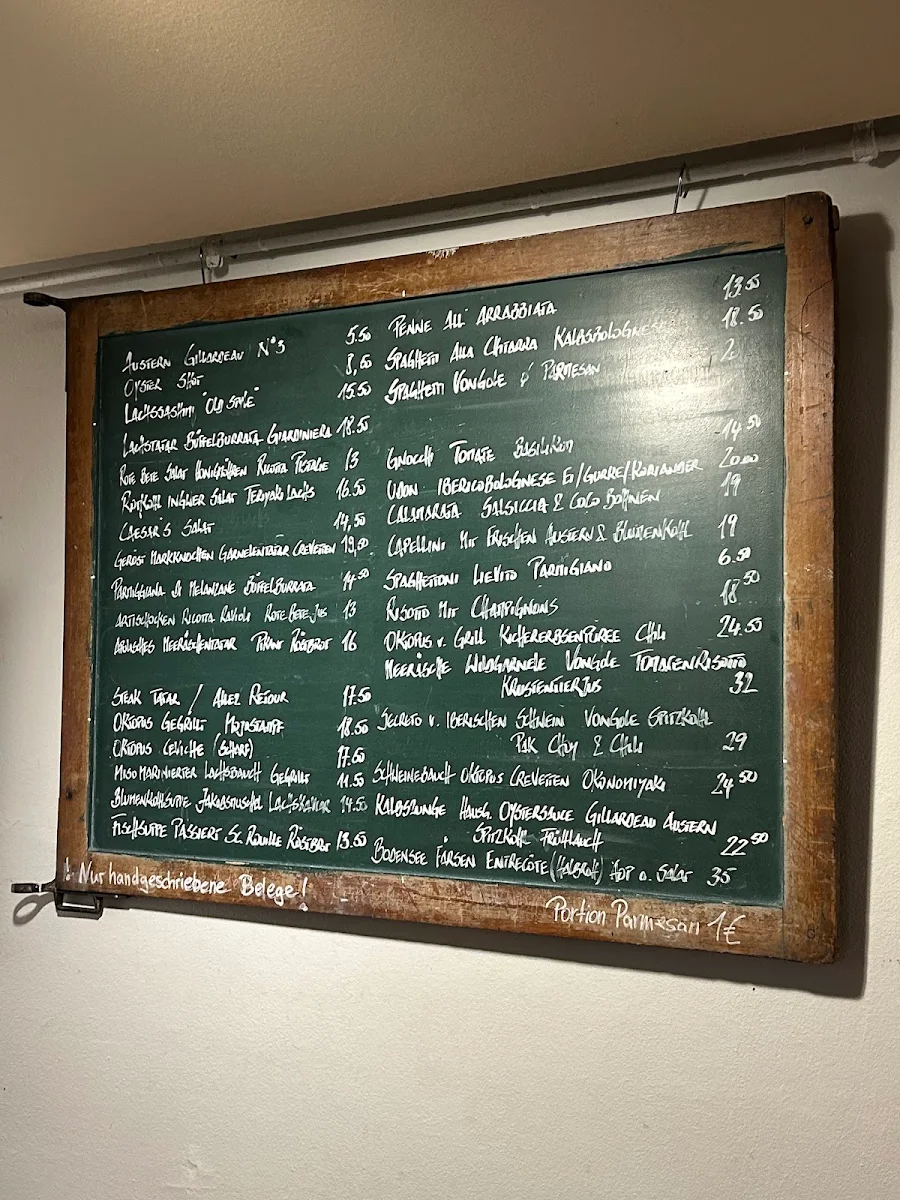 AUSTERN GILLARDEAU N°3 5.50
OYSTER SHOT 8,50
LACHSSASHIMI "OLD STYLE" 15.50
LACHSTATAR BÜFFELBURRATA GIARDINIERA 18.50
ROTE BETE SALAT RICOTTA 13
ROTKOHL INGWER SALAT TERIYAKI LACHS 16.50
CAESAR'S SALAT 14,50
GERÖST MARKKNOCHEN GARNELENTATAR CREVETTEN 19,00
PARMIGGIANA DI MELANZANE BÜFFELBURRATA 14.50
ARTISCHOCKEN RICOTTA RAVIOLI ROTE BETE JUS 13
MEERÄSCHENTATAR PIKANT RÖSTBROT 16
STEAK TATAR / ALLEZ RETOUR 17.50
OKTOPUS GEGRILLT 18.50
OKTOPUS CEVICHE (SCHARF) 17.50
MISO MARINIERTER LACHSBAUCH GEGRILLT 11.50
BLUMENKOHLSUPPE JAKOBSMUSCHEL LACHSKAVIAR 14.50
FISCHSUPPE PASSIERT SC. ROUILLE RÖSTBROT 13.50
PENNE ALL' ARRABBIATA 13.50
SPAGHETTI ALLA CHITARRA KALBSBOLOGNESE 18.50
SPAGHETTI VONGOLE PARMESAN
GNOCCHI TOMATE BASILIKUM 14.50
UDON IBERICOBOLOGNESE EI/GURKE/KORIANDER 20.00
CALAMARATA SALSICCIA & COCO BOHNEN 19
CAPELLINI MIT FRISCHEN AUSTERN & BLUMENKOHL 19
SPAGHETTONI LIEVITO PARMIGIANO 6.50
RISOTTO MIT CHAMPIGNONS 18.50
OKTOPUS V. GRILL KICHERERBSENPÜREE CHILI 24.50
MEERÄSCHE WILDGARNELE VONGOLE TOMATENRISOTTO
KRUSTENTIERJUS 32
SECRETO V. IBERISCHEN SCHWEIN VONGOLE SPITZKOHL
PAK CHOY & CHILI 29
SCHWEINEBAUCH OKTOPUS CREVETTEN OKONOMIYAKI 24.50
KALBSZUNGE HAUSG. OYSTERSAUCE GILLARDEAU AUSTERN
SPITZKOHL FRÜHLAUCH 22.50
BODENSEE FÄRSEN ENTRECÔTE (HALBROH) KDP O. SALAT 35
! Nur handgeschriebene Belege!
Portion Parmesan 1€